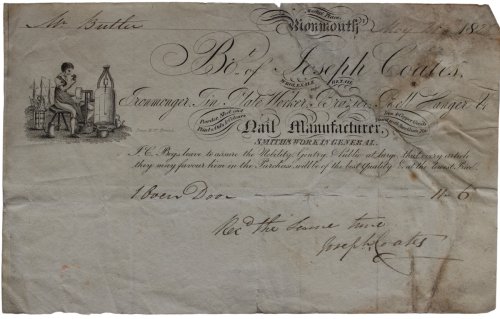 Mr Butler
Monmouth, May 18
Bot. of Joseph Coates,
WHOLESALE and RETAIL
Ironmonger, Tin Plate Worker, Brazier, Bell Hanger &c
Powder, Shot
Nail Manufacturer,
SMITHS WORK IN GENERAL.
J. C. Begs leave to assure the Nobility, Gentry & Public at large, that every article
they may favour him in the Purchase, will be of the best Quality & at the lowest
1 Oven Door 6
Recd the same time
Joseph Coates